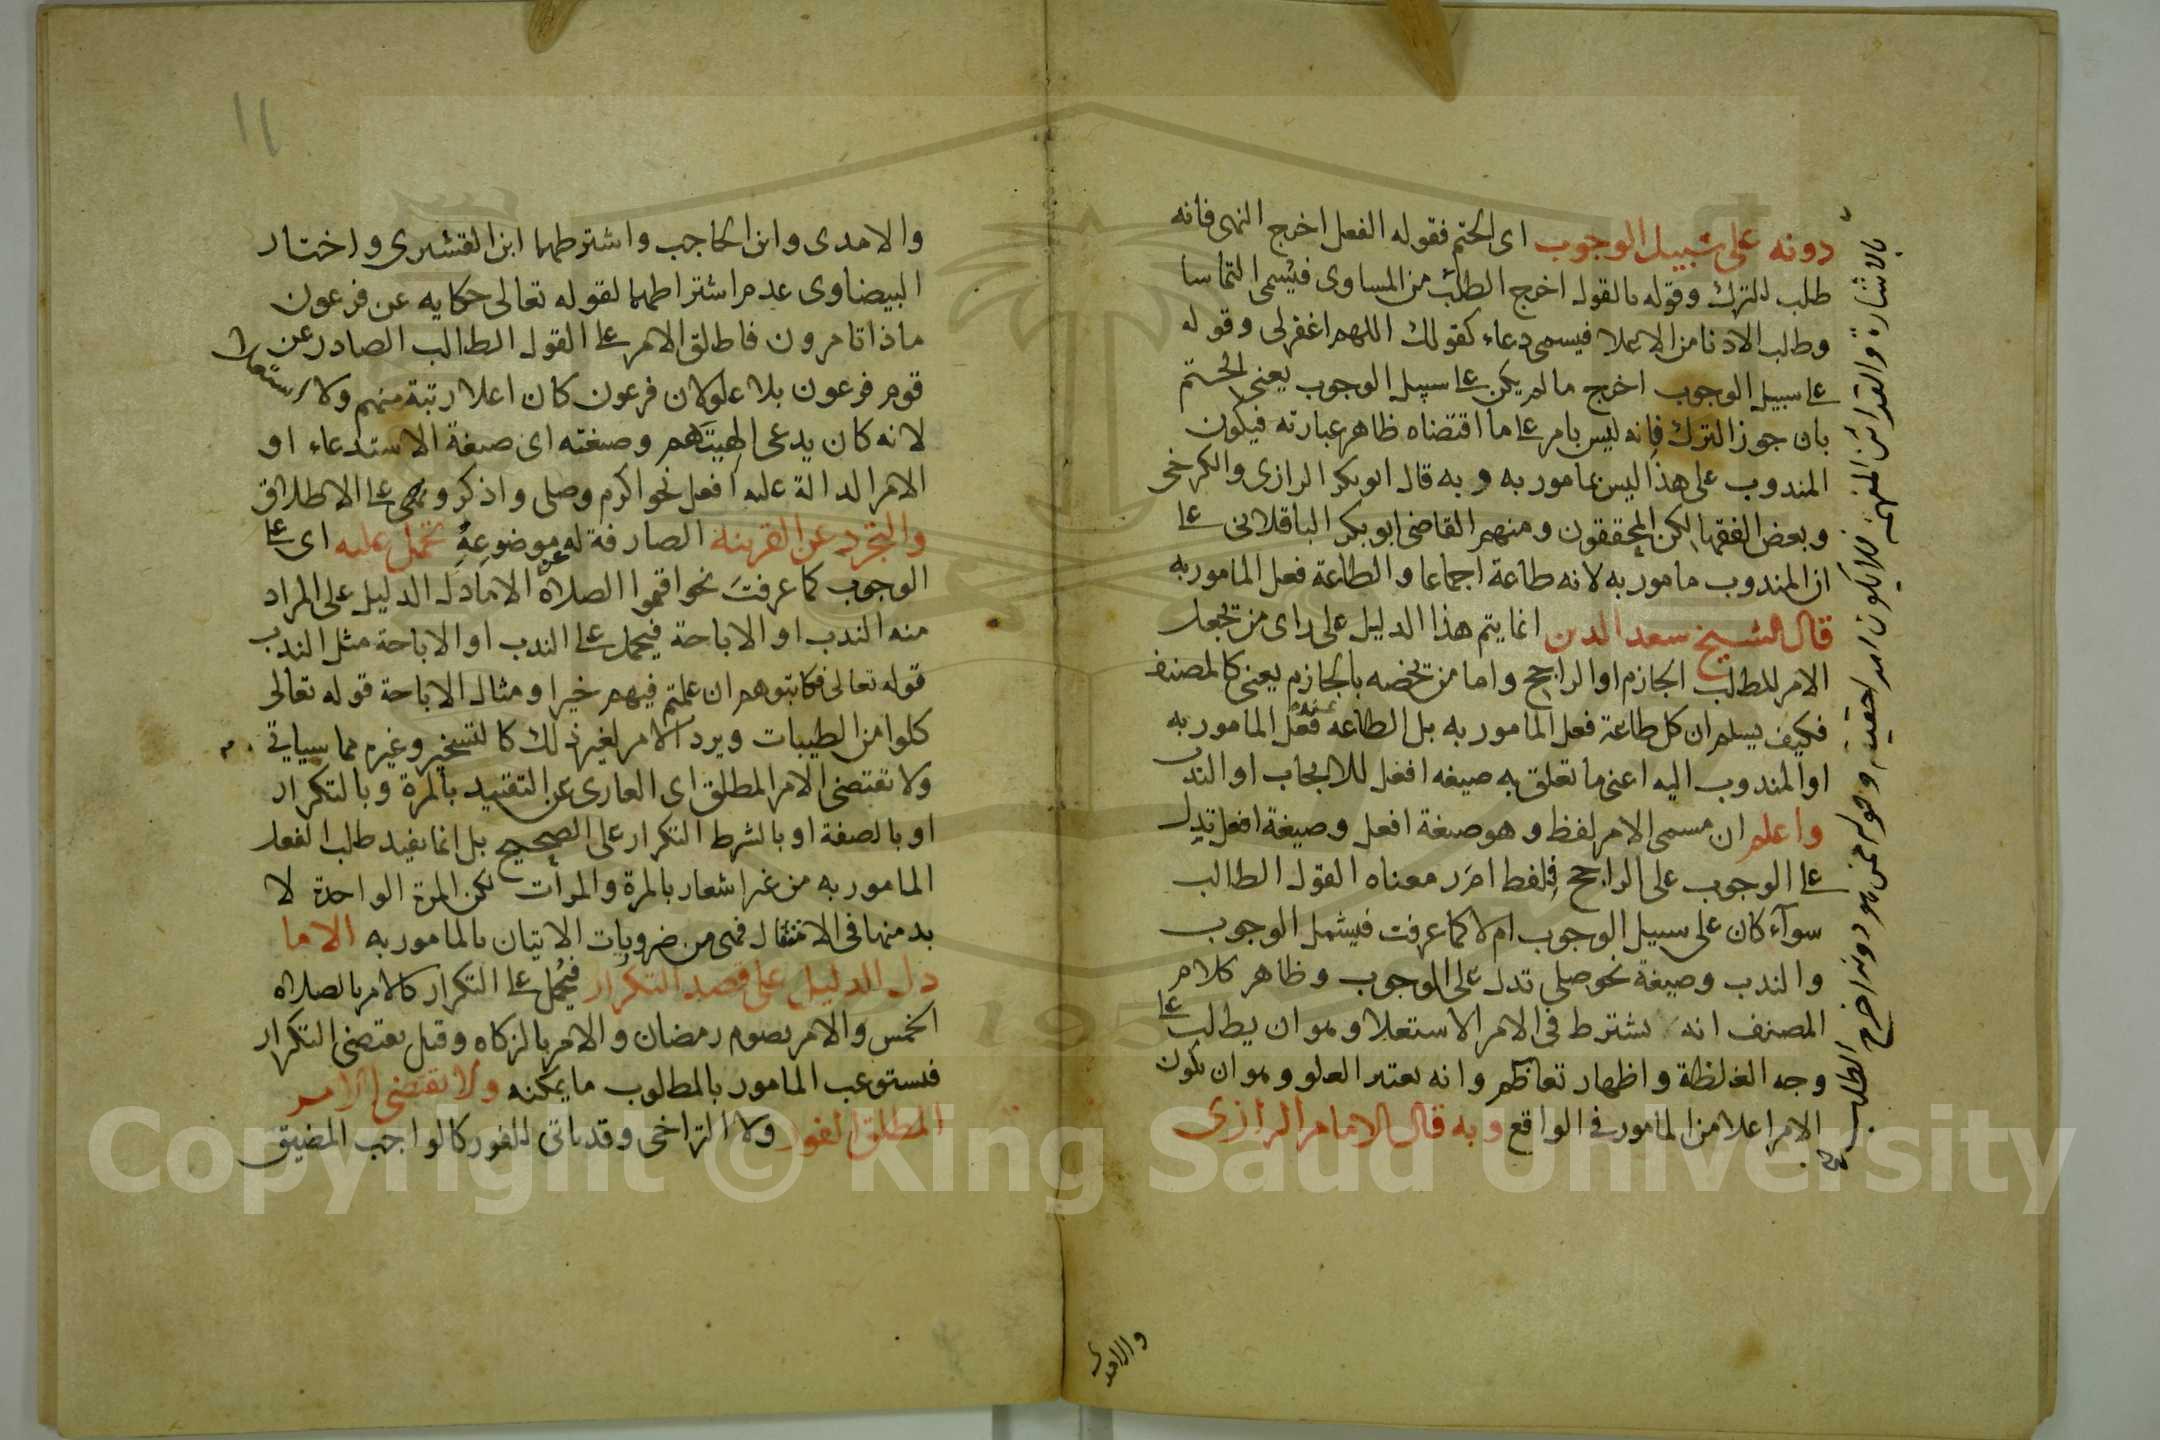 دونه على سبيل الوجوب اى الحتم فقوله الفعل اخرج النهى فانه
طلب للترك وقوله بالقول اخرج الطلب من المساوى فيسمى التماسا
وطلب الادنا من الاعلا فيسمى دعاء كقولك اللهم اغفرلى وقوله
على سبيل الوجوب اخرج ما لم يكن على سبيل الوجوب يعنى الحتم
بان جوز الترك فانه ليس بامر على ما اقتضاه ظاهر عبارته فيكون
المندوب على هذا ليس مامور به وبه قال ابو بكر الرازى والكرخى
وبعض الفقها لكن المحققون ومنهم القاضى ابو بكر الباقلانى على
ان المندوب مامور به لانه طاعة اجماعا والطاعة فعل المامور به
قال الشيخ سعد الدين انما يتم هذا الدليل على راى من يجعل
الامر للطلب الجازم او الراجح واما من يخصه بالجازم يعنى كالمصنف
فكيف يسلم ان كل طاعة فعل المامور به بل الطاعه عنده فعل المامور به
او المندوب اليه اعنى ما تعلق به صيغه افعل للايجاب او الندب
واعلم ان مسمى الامر لفظ وهو صيغة افعل وصيغة افعل تدل
على الوجوب على الراجح فلفظ امر معناه القول الطالب
سوآء كان على سبيل الوجوب ام لا كما عرفت فيشمل الوجوب
والندب وصيغة نحو صلى تدل على الوجوب وظاهر كلام
المصنف انه يشترط فى الامر الاستعلا وهو ان يطالب على
وجه الغلظة واظهار تعاظم وانه يعتبر العلو وهو ان يكون
الامر اعلا من المامور فى الواقع وبه قال الامام الرازى
بالاشارة والقرائن المفهمة فلا يكون امرا حقيقة وقوله لمن هو دونه اخرج الطلب
والامدى
١١
والامدى وابن الحاجب واشترطهما ابن القشيرى واختار
البيضاوى عدم اشتراطهما لقوله تعالى حكايه عن فرعون
ماذا تامرون فاطلق الامر على القول الطالب الصادر عن
قوم فرعون بلا علو لان فرعون كان اعلا رتبة منهم ولا استعلا
لانه كان يدعى الهيتهم وصيغته اى صيغة الاستدعاء او
الامر الدالة عليه افعل نحو اكرم وصلى واذكر وهى على الاطلاق
والتجرد عن القرينة الصارفة له عن موضوعه تحمل عليه اى على
الوجوب كما عرفت نحو اقيموا الصلاة الا ما دل الدليل على المراد
منه الندب او الاباحة فيحمل على الندب او الاباحة مثل الندب
قوله تعالى فكاتبوهم ان علمتم فيهم خيرا ومثال الاباحة قوله تعالى
كلوا من الطيبات ويرد الامر لغير ذلك كالتسخير وغيره مما سياتى
ولا تقتضى الامر المطلق اى العارى عن التقييد بالمرة وبالتكرار
او بالصفة او بالشرط التكرار على الصحيح بل انما يفيد طلب الفعل
المامور به من غير اشعار بالمرة والمرات لكن المرة الواحدة لا
بد منها فى الامتثال فهى من ضروريات الاتيان بالمامور به الا ما
دل الدليل على قصد التكرار فيحمل على التكرار كالامر بالصلاة
الخمس والامر بصوم رمضان والامر بالزكاه وقيل يقتضى التكرار
فيستوعب المامور بالمطلوب ما يمكنه ولا تقتضى الامر
المطلق الفور ولا التراخى وقد ياتى للفور كالواجب المضيق
Copyright © King Saud University